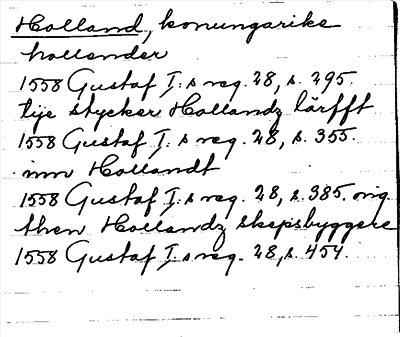 Holland, konungarike
hollender
1558 Gustaf I:s reg. 28, s. 295.
tije stycker Hollandz lärfft
1558 Gustaf I:s reg. 28, s. 355.
inn Hollandt
1558 Gustaf I:s reg. 28, s. 385. orig.
then Hollandz skepsbyggere
1558 Gustaf I:s reg. 28, s. 454.